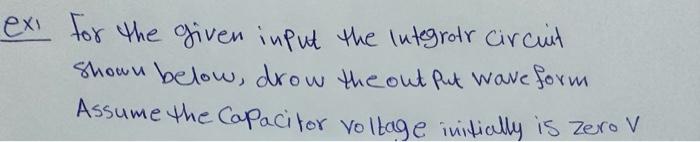 ex1 For the given input the Integrotr circuit
shown below, drow the out Put wave form
Assume the Capacitor voltage initially is zero V